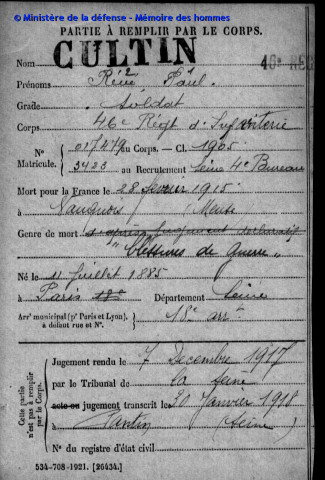 © Ministère de la défense - Mémoire des hommes
PARTIE À REMPLIR PAR LE CORPS.
Nom CULTIN
Prénoms René 2 Paul 1
Grade Soldat
Corps 46e Régt d'Infanterie
N° 017479 au Corps. — Cl. 1905
Matricule. 3423 au Recrutement Seine 4e Bureau
Mort pour la France le 28 février 1915
à Vauquois Meuse
Genre de mort d'après jugement déclaratif
"blessures de guerre"
Né le 11 juillet 1885
à Paris 18e Département Seine
Arr' municipal (p' Paris et Lyon), à défaut rue et N°. 18e arrt
Jugement rendu le 7 Décembre 1917
par le Tribunal de la Seine
acte ou jugement transcrit le 30 Janvier 1918
à Pantin (Seine)
N° du registre d'état civil
Cette partie n'est pas à remplir par le Corps.
534-708-1921. [26434.]